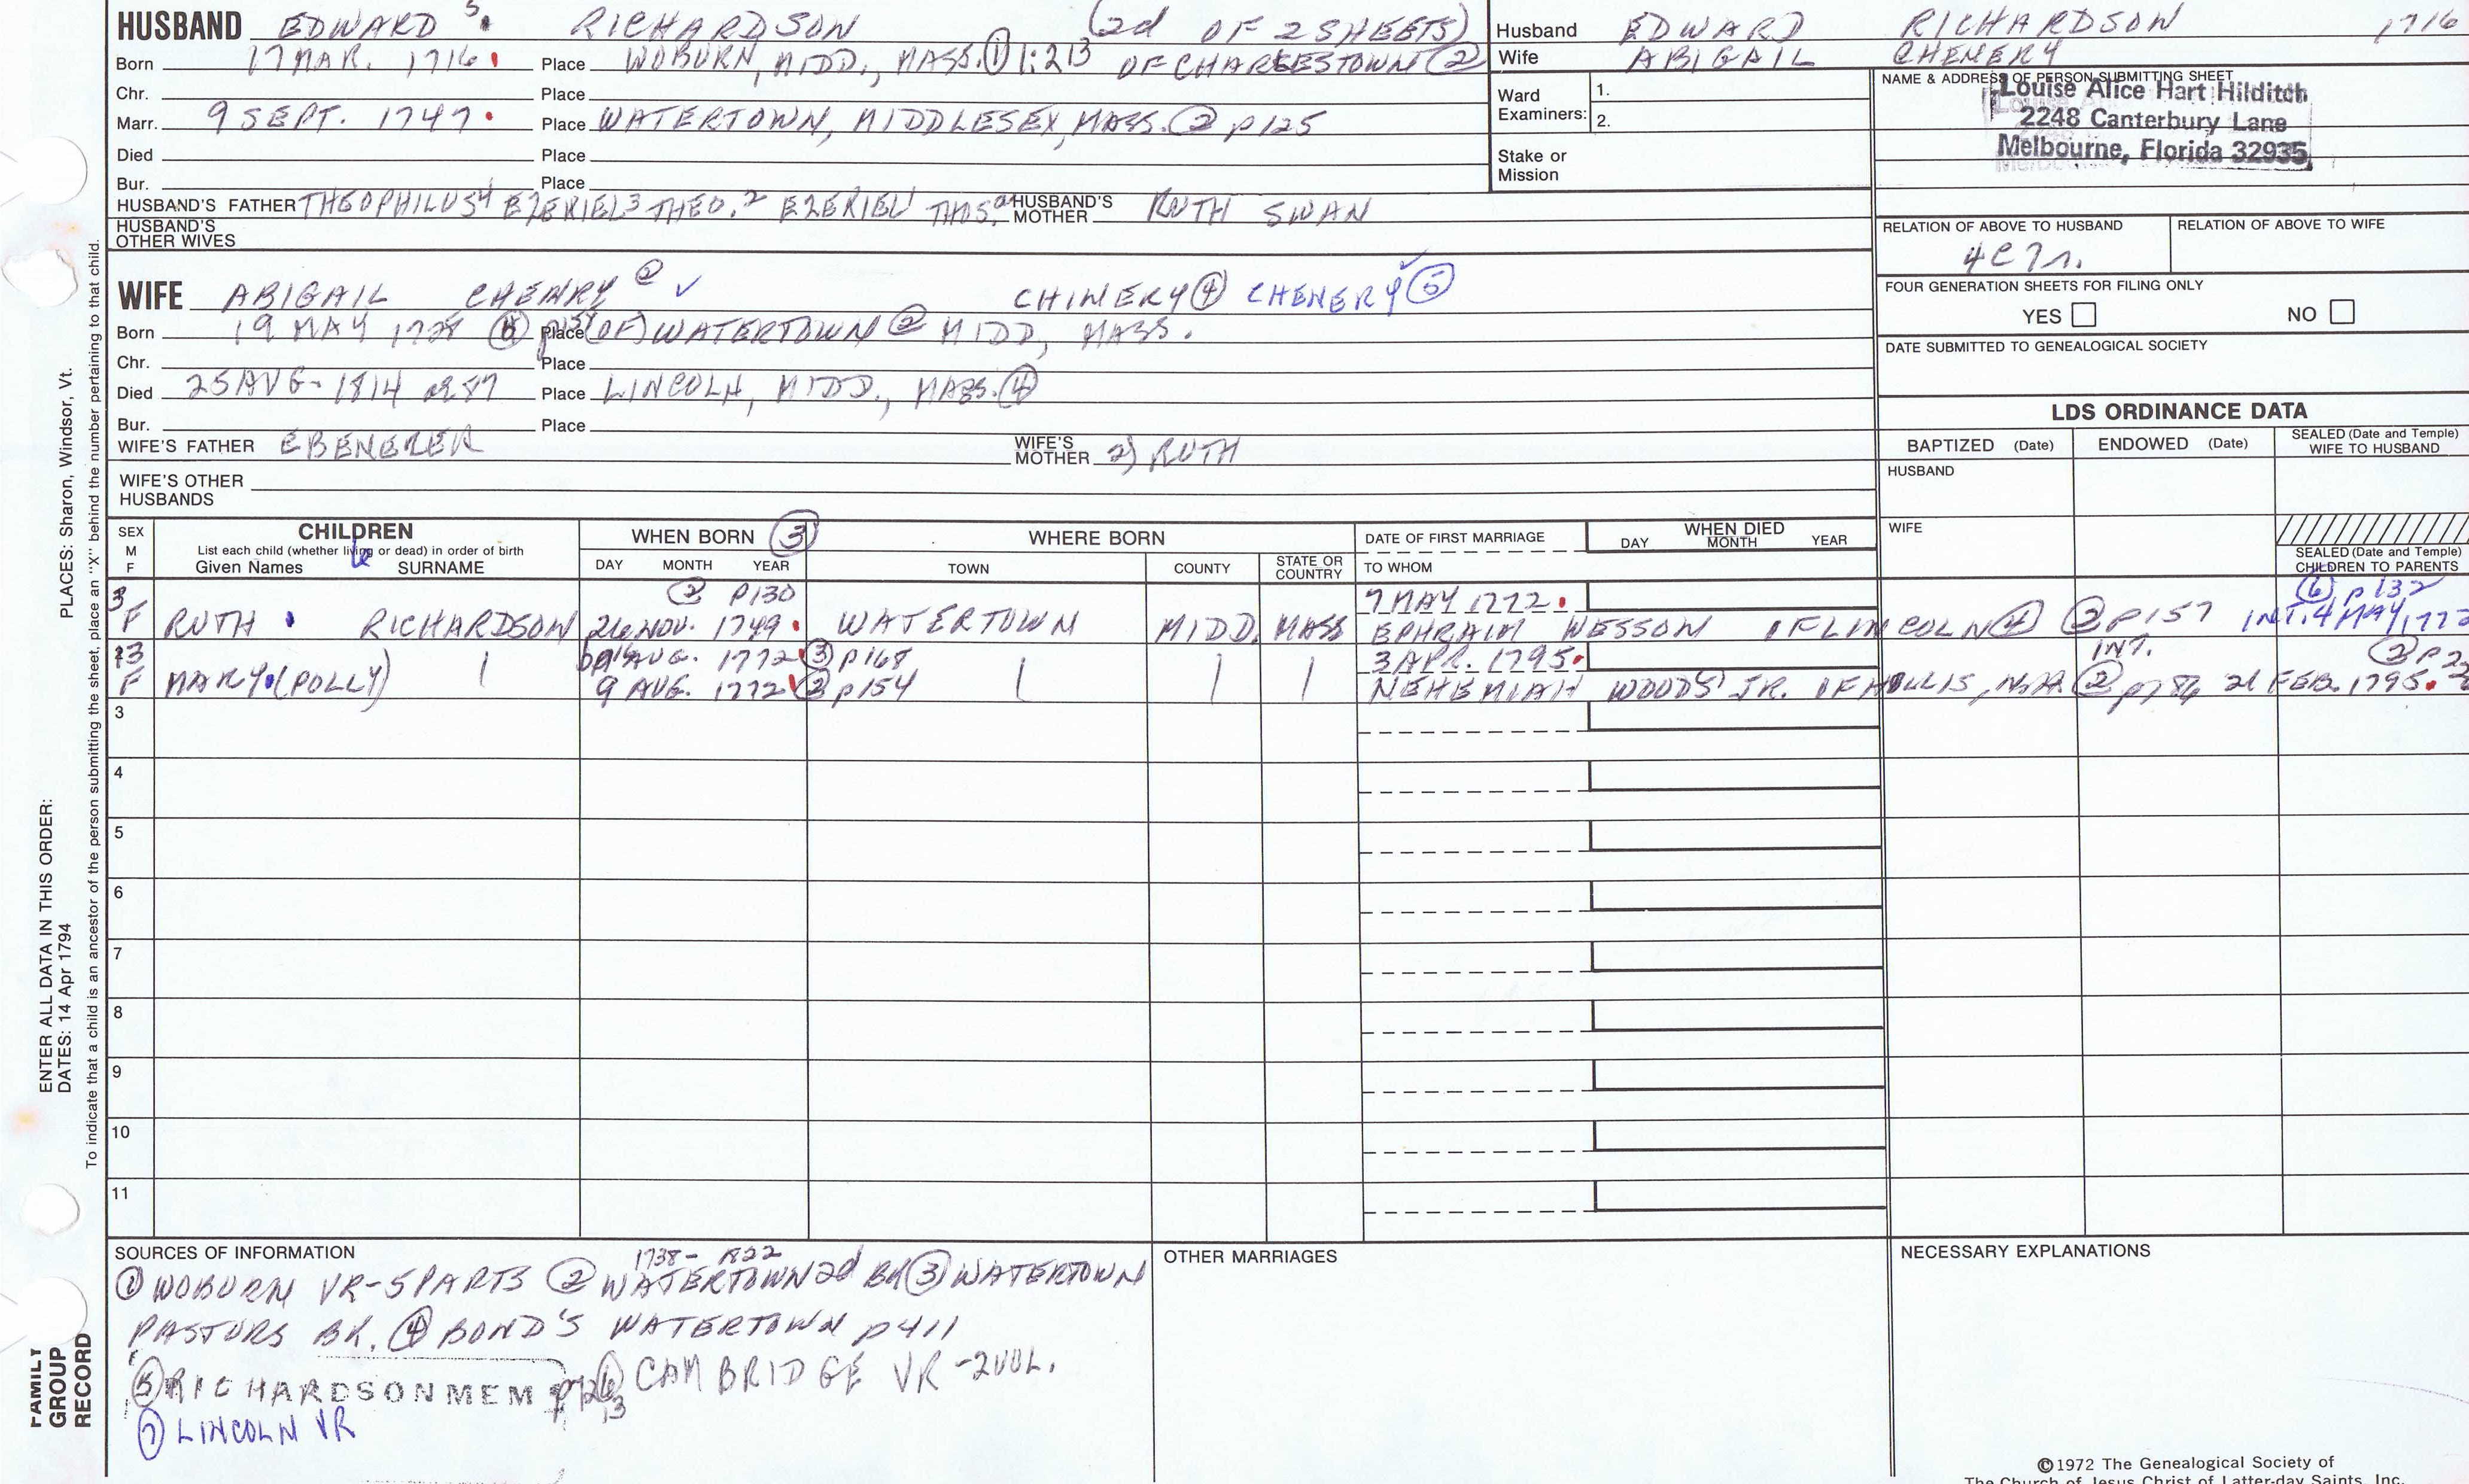 HUSBAND EDWARD 5. RICHARDSON (2d OF 2 SHEETS)
Born 17 MAR. 1716 Place WOBURN, MIDD., MASS. ① 1:213 OF CHARLESTOWN ②
Chr. Place
Marr. 9 SEPT. 1747 Place WATERTOWN, MIDDLESEX, MASS. ② p125
Died Place
Bur. Place
HUSBAND'S FATHER THEOPHILUS4 EZEKIEL3 THEO.2 EZEKIEL1 THOS.a HUSBAND'S MOTHER RUTH SWAN
HUSBAND'S OTHER WIVES
Husband EDWARD RICHARDSON 1716
Wife ABIGAIL CHENERY
Ward Examiners: 1.
2.
Stake or Mission
NAME & ADDRESS OF PERSON SUBMITTING SHEET
Louise Alice Hart Hilditch
2248 Canterbury Lane
Melbourne, Florida 32935
RELATION OF ABOVE TO HUSBAND RELATION OF ABOVE TO WIFE
4C7r.
FOUR GENERATION SHEETS FOR FILING ONLY
YES NO
DATE SUBMITTED TO GENEALOGICAL SOCIETY
WIFE ABIGAIL ② ✓ CHINERY ④ CHENERY ⑤
Born 19 MAY 1728 Place (OF) WATERTOWN ② MIDD, MASS.
Chr. Place
Died 25 AUG. 1814 æ 87 Place LINCOLN, MIDD., MASS. ④
Bur. Place
WIFE'S FATHER EBENEZER WIFE'S MOTHER 2) RUTH
WIFE'S OTHER HUSBANDS
LDS ORDINANCE DATA
BAPTIZED (Date) ENDOWED (Date) SEALED (Date and Temple) WIFE TO HUSBAND
HUSBAND
WIFE
SEALED (Date and Temple) CHILDREN TO PARENTS
SEX M F
CHILDREN
List each child (whether living or dead) in order of birth
Given Names SURNAME
WHEN BORN ③
DAY MONTH YEAR
WHERE BORN
TOWN COUNTY STATE OR COUNTRY
DATE OF FIRST MARRIAGE
TO WHOM
WHEN DIED
DAY MONTH YEAR
② P130 7 MAY 1772 ⑥ p132
F RUTH RICHARDSON 26 NOV. 1749 WATERTOWN MIDD. MASS EPHRAIM WESSON OF LINCOLN ④ ② p157 INT. 4 MAY, 1772
AUG. 1772 ③ p168 3 APR. 1795 INT.
F MARY (POLLY) 9 AUG. 1772 ② p154 NEHEMIAH WOODS JR. OF HOLLIS, N.H. ② 21 FEB. 1795
3
4
5
6
7
8
9
10
11
SOURCES OF INFORMATION
1738- 1822
① WOBURN VR-5 PARTS ② WATERTOWN 2d BK ③ WATERTOWN
PASTORS BK. ④ BOND'S WATERTOWN p411
⑤ RICHARDSON MEM ⑥ CAMBRIDGE VR -2 VOL.
⑦ LINCOLN VR
OTHER MARRIAGES
NECESSARY EXPLANATIONS
©1972 The Genealogical Society of
The Church of Jesus Christ of Latter-day Saints, Inc.
PLACES: Sharon, Windsor, Vt.
ENTER ALL DATA IN THIS ORDER:
DATES: 14 Apr 1794
To indicate that a child is an ancestor of the person submitting the sheet, place an "X" behind the number pertaining to that child.
FAMILY GROUP RECORD